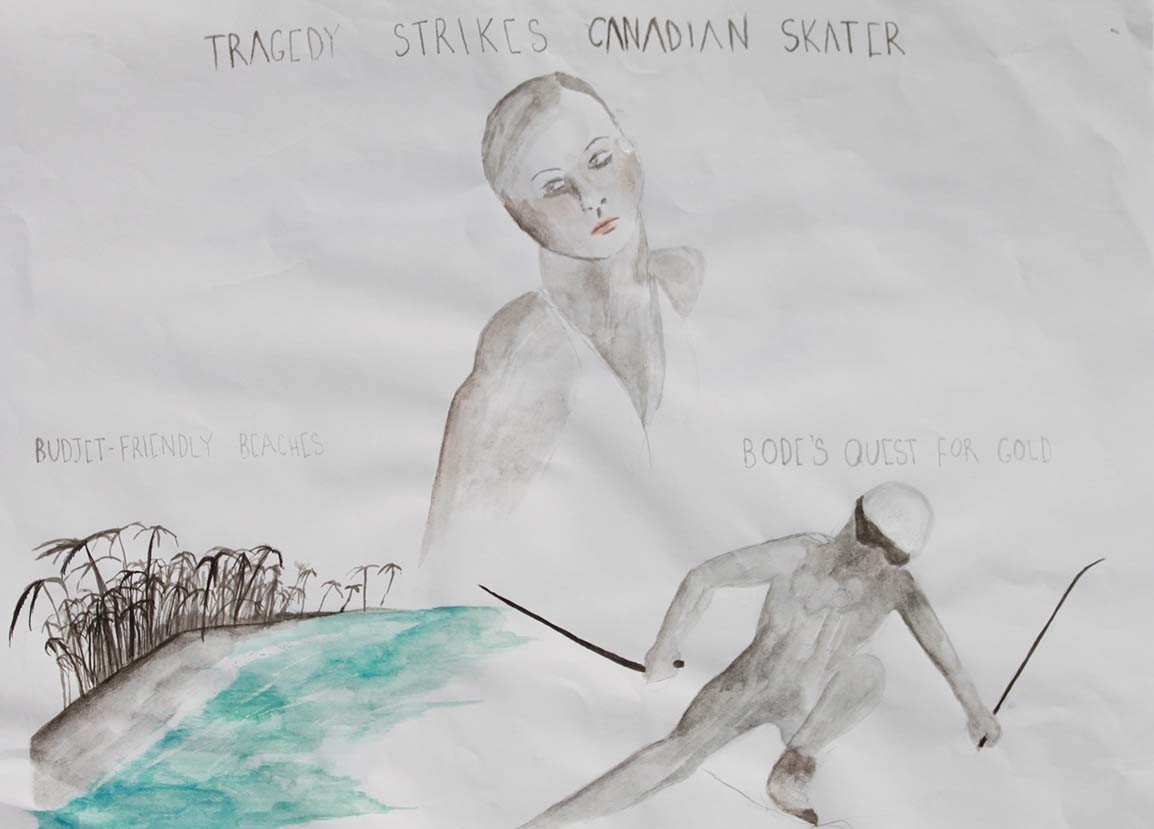 TRAGEDY STRIKES CANADIAN SKATER
BUDJET-FRIENDLY BEACHES
BODE'S QUEST FOR GOLD